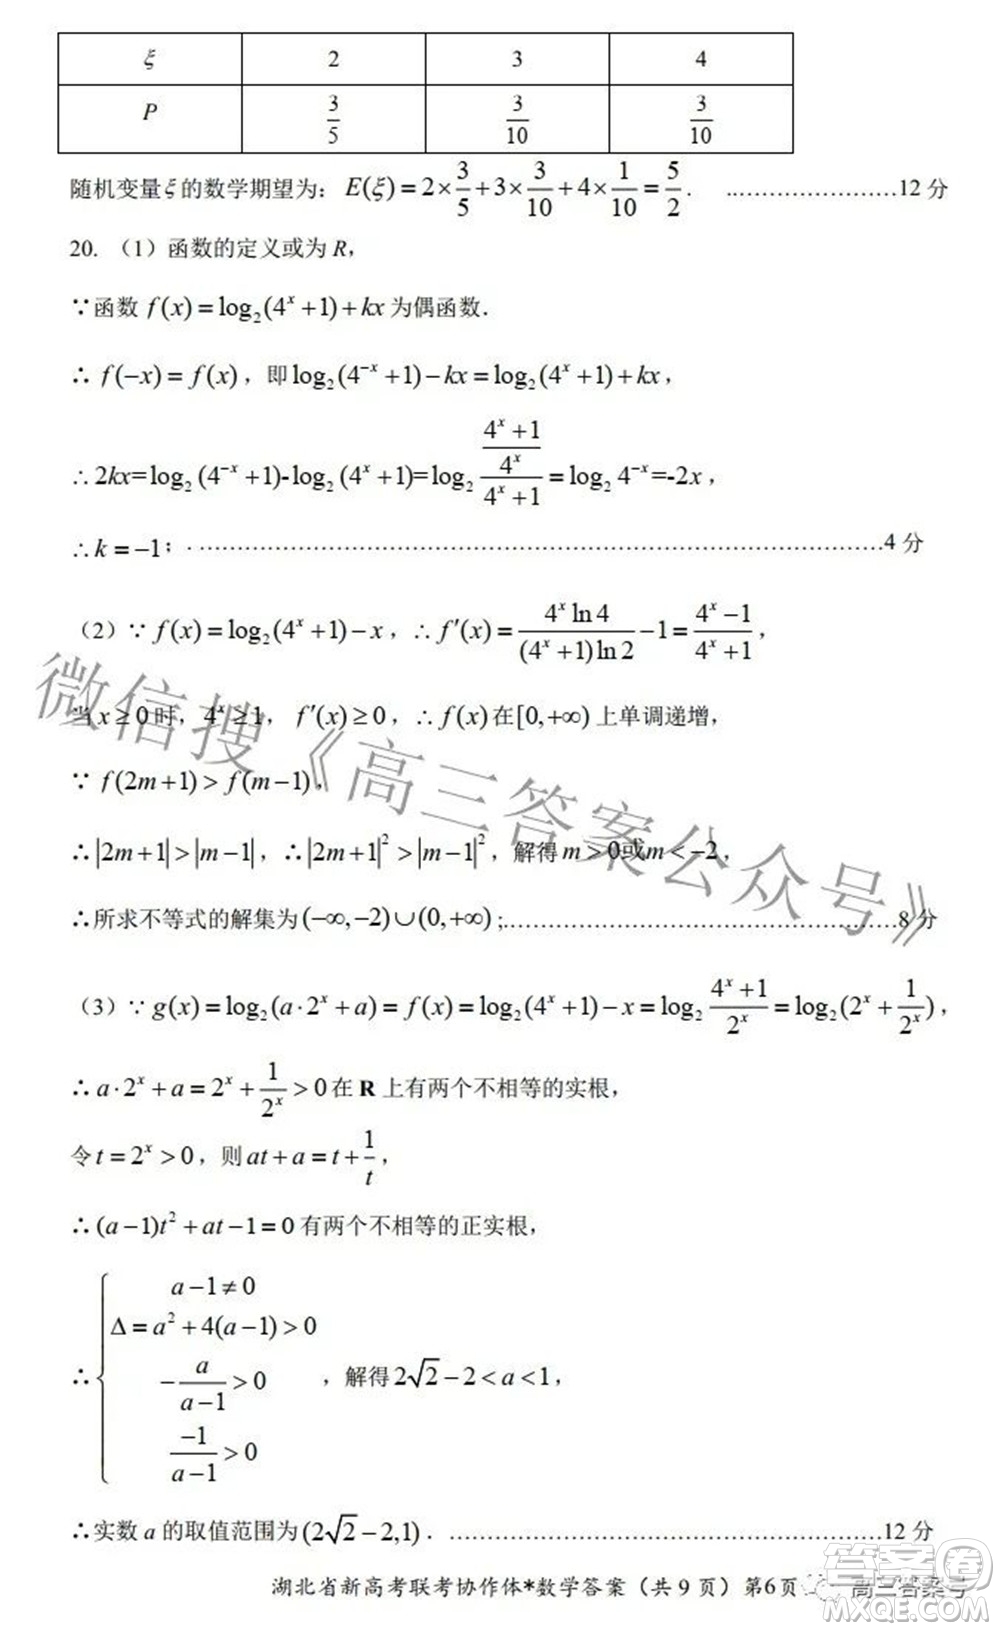 ξ 2 3 4
P 3/5 3/10 3/10
随机变量ξ的数学期望为：E(ξ)=2×3/5+3×3/10+4×1/10=5/2. ........................12 分
20. （1）函数的定义或为 R，
∵函数 f(x)=log₂(4ˣ+1)+kx 为偶函数.
∴ f(−x)=f(x)，即 log₂(4⁻ˣ+1)−kx=log₂(4ˣ+1)+kx，
∴2kx=log₂(4⁻ˣ+1)-log₂(4ˣ+1)=log₂ ((4ˣ+1)/4ˣ)/(4ˣ+1)=log₂4⁻ˣ=-2x，
∴k=−1；........................4 分
（2）∵ f(x)=log₂(4ˣ+1)−x，∴ f′(x)=4ˣln4/((4ˣ+1)ln2)−1=(4ˣ−1)/(4ˣ+1)，
当 x≥0 时，4ˣ≥1，f′(x)≥0，∴ f(x) 在[0,+∞) 上单调递增，
∵ f(2m+1)>f(m−1)，
∴|2m+1|>|m−1|，∴|2m+1|²>|m−1|²，解得 m>0或m<−2，
∴所求不等式的解集为 (−∞,−2)∪(0,+∞)；........................8 分
（3）∵ g(x)=log₂(a·2ˣ+a)=f(x)=log₂(4ˣ+1)−x=log₂ (4ˣ+1)/2ˣ=log₂(2ˣ+1/2ˣ)，
∴a·2ˣ+a=2ˣ+1/2ˣ>0 在 R 上有两个不相等的实根，
令 t=2ˣ>0，则 at+a=t+1/t，
∴(a−1)t²+at−1=0 有两个不相等的正实根，
a−1≠0
Δ=a²+4(a−1)>0
∴{ −a/(a−1)>0 ，解得 2√2−2<a<1，
−1/(a−1)>0
∴实数 a 的取值范围为 (2√2−2,1)．........................12 分
湖北省新高考联考协作体*数学答案（共 9 页）第6页
微信搜《高三答案公众号》
高三答案号
答案圈
MXQE.COM